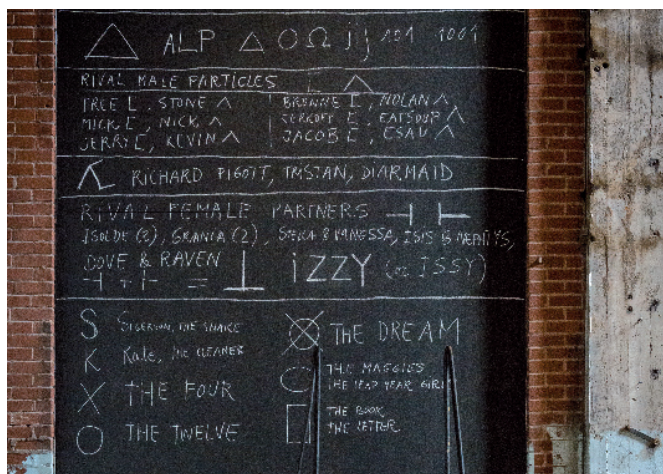 △ ALP △ O Ω i j 101 1001
RIVAL MALE PARTICLES [ Λ
TREE [, STONE Λ
MICK [, NICK Λ
JERRY [, KEVIN Λ
BROWNE [, NOLAN Λ
JERKOFF [, EATSOUP Λ
JACOB [, ESAU Λ
RICHARD PIGOTT, TRISTAN, DIARMAID
RIVAL FEMALE PARTNERS ⊣ ⊢
ISOLDE (2), GRANIA (2), STELLA & VANESSA, ISIS &
DOVE & RAVEN
⊣ + ⊢ = ⊥ iZZY (or ISSY)
S SIGERSON, THE SNAKE
K Kate, THE CLEANER
X THE FOUR
O THE TWELVE
⊗ THE DREAM
THE MAGGIES
THE LEAP YEAR GIRLS
□ THE BOOK
THE LETTER